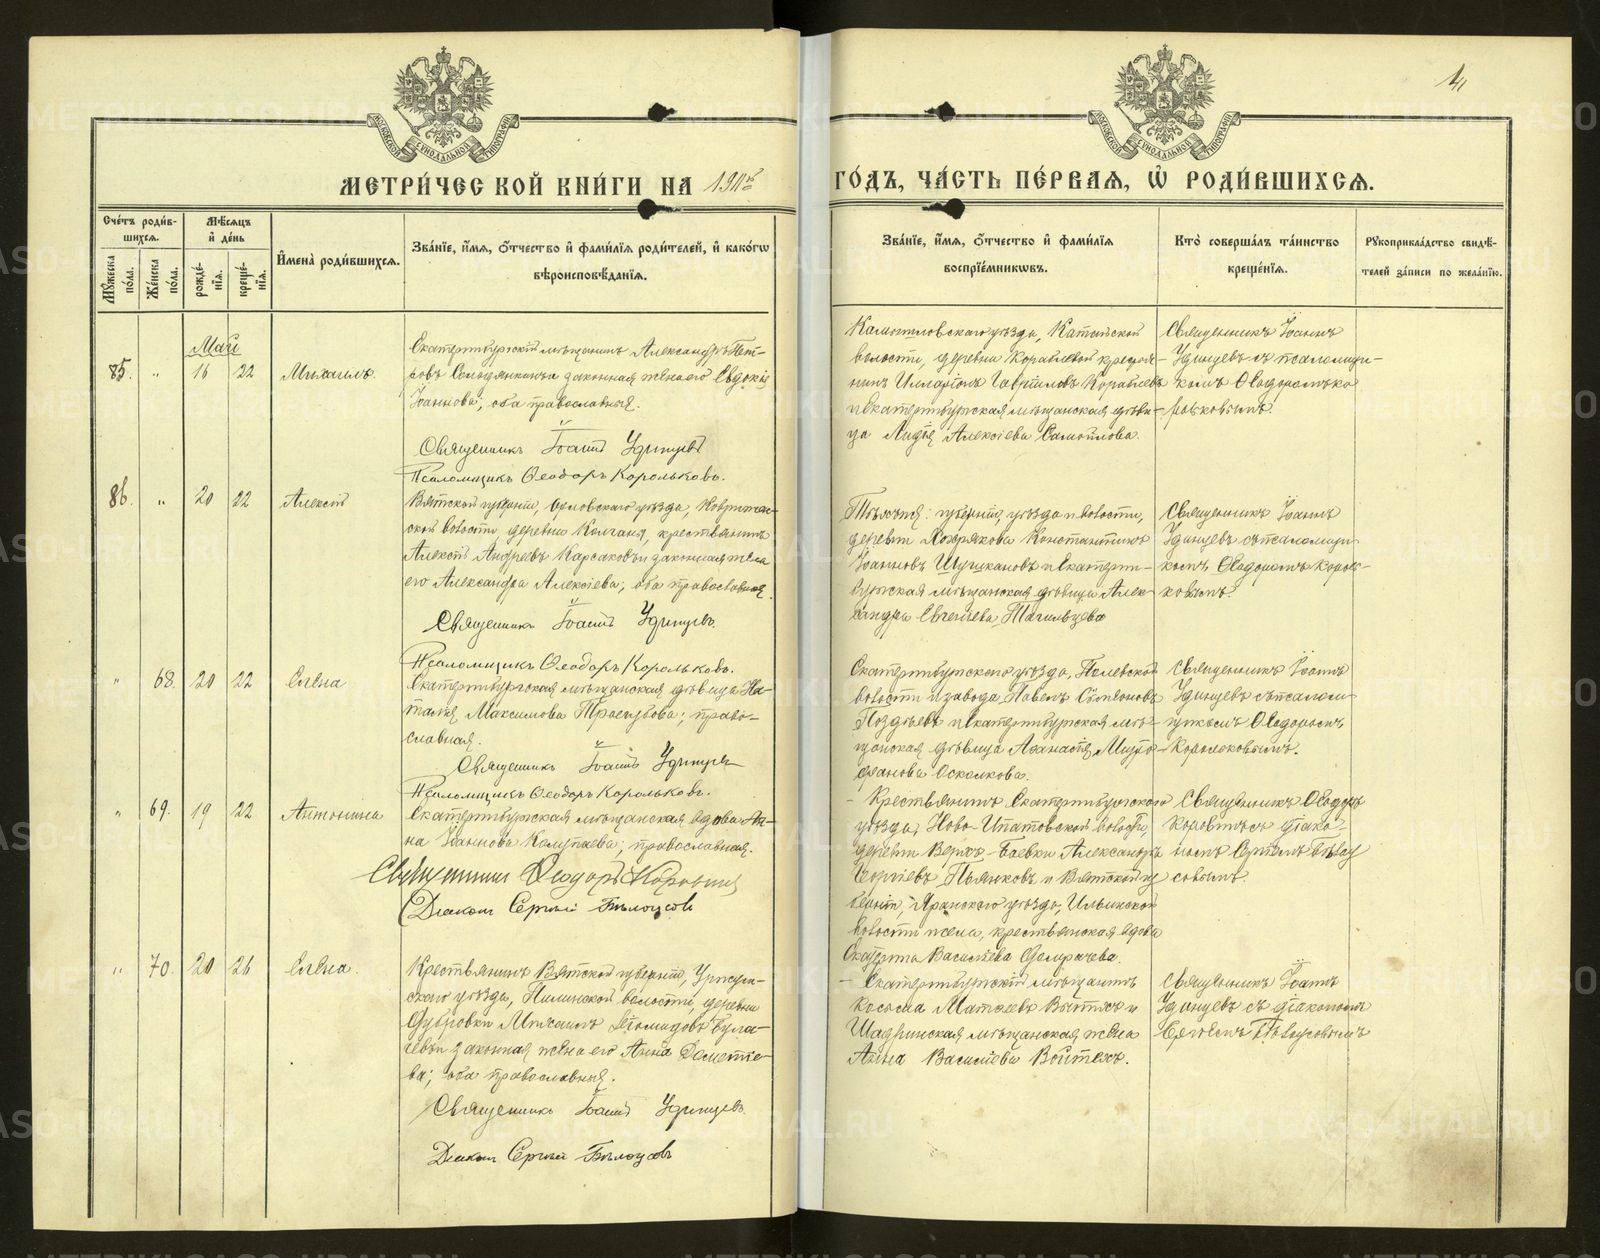 4
МЕТРИЧЕСКОЙ КНИГИ НА 1911й ГОДЪ, ЧАСТЬ ПЕРВАЯ, Ѡ РОДИВШИХСЯ.
Счетъ родив-
шихся.
Мужеска
пола.
Женска
пола.
Мѣсяцъ
и день
рожде-
нїя.
креще-
нїя.
Имена родившихся.
Званїе, имя, отчество и фамилїя родителей, и какогѡ
вѣроисповѣданїя.
Званїе, имя, отчество и фамилїя
воспрїемниковъ.
Кто совершалъ таинство
крещенїя.
Рукоприкладство свидѣ-
телей записи по желанїю.
Май
85. " 16 22 Михаилъ.
Екатеринбургскій мѣщанинъ Александръ Пет-
ровъ законная жена его Евдокія
Іоаннова; оба православныя.
Священникъ Іоаннъ Удинцевъ
Псаломщикъ Ѳеодоръ Корольковъ.
Камышловскаго уѣзда, Катайской
волости, деревни Кораблевой крестья-
нинъ Илларіонъ Гавриловъ Кораблевъ
и Екатеринбургская мѣщанская дѣви-
ца Лидія Алексіева Самойлова.
Священникъ Іоаннъ
Удинцевъ съ псаломщи-
комъ Ѳеодоромъ Ко-
рольковымъ.
86. " 20 22 Алексій
Вятской губерніи, Орловскаго уѣзда,
волости, деревни крестьянинъ
Алексій Андреевъ Карсаковъ и законная жена
его Александра Алексіева; оба православныя.
Священникъ Іоаннъ Удинцевъ.
Псаломщикъ Ѳеодоръ Корольковъ.
губерніи, уѣзда и волости,
деревни Константинъ
Іоанновъ и Екатерин-
бургская мѣщанская дѣвица Алек-
сандра Евгеніева Тагильцева
Священникъ Іоаннъ
Удинцевъ съ псаломщи-
комъ Ѳеодоромъ Король-
ковымъ.
" 68. 20 22 Елена
Екатеринбургская мѣщанская дѣвица На-
талія Максимова право-
славная.
Священникъ Іоаннъ Удинцевъ
Псаломщикъ Ѳеодоръ Корольковъ.
Екатеринбургскаго уѣзда, Полевской
волости и завода Павелъ Симеоновъ
Поздѣевъ и Екатеринбургская мѣ-
щанская дѣвица Аѳанасія Митро-
фанова Осколкова.
Священникъ Іоаннъ
Удинцевъ съ псалом-
щикомъ Ѳеодоромъ
Корольковымъ.
" 69. 19 22 Антонина
Екатеринбургская мѣщанская вдова Ан-
на Іоаннова Колупаева; православная.
Священникъ Ѳеодоръ Коровинъ
Діаконъ Сергій Бѣлоусовъ
Крестьянинъ Екатеринбургскаго
уѣзда, Ново-Ипатовской волости,
деревни Верхъ-Боевки Александръ
Георгіевъ Пьянковъ и Вятской гу-
берніи, Яранскаго уѣзда, Ильинской
волости и села, крестьянская вдова
Екатерина Васильева
Священникъ Ѳеодоръ
Коровинъ съ діако-
номъ Сергіемъ Бѣлоу-
совымъ.
" 70. 20 26 Елена.
Крестьянинъ Вятской губерніи, Уржум-
скаго уѣзда, Пилинской волости, деревни
Дубровки Михаилъ Діомидовъ Була-
евъ и законная жена его Анна Дометіе-
ва; оба православныя.
Священникъ Іоаннъ Удинцевъ.
Діаконъ Сергій Бѣлоусовъ
Екатеринбургскій мѣщанинъ
Косьма Матѳеевъ Войтехъ и
Шадринская мѣщанская жена
Анна Васильева Войтехъ.
Священникъ Іоаннъ
Удинцевъ съ діакономъ
Сергіемъ Бѣлоусовымъ
METRIKI.GASO-URAL.RU